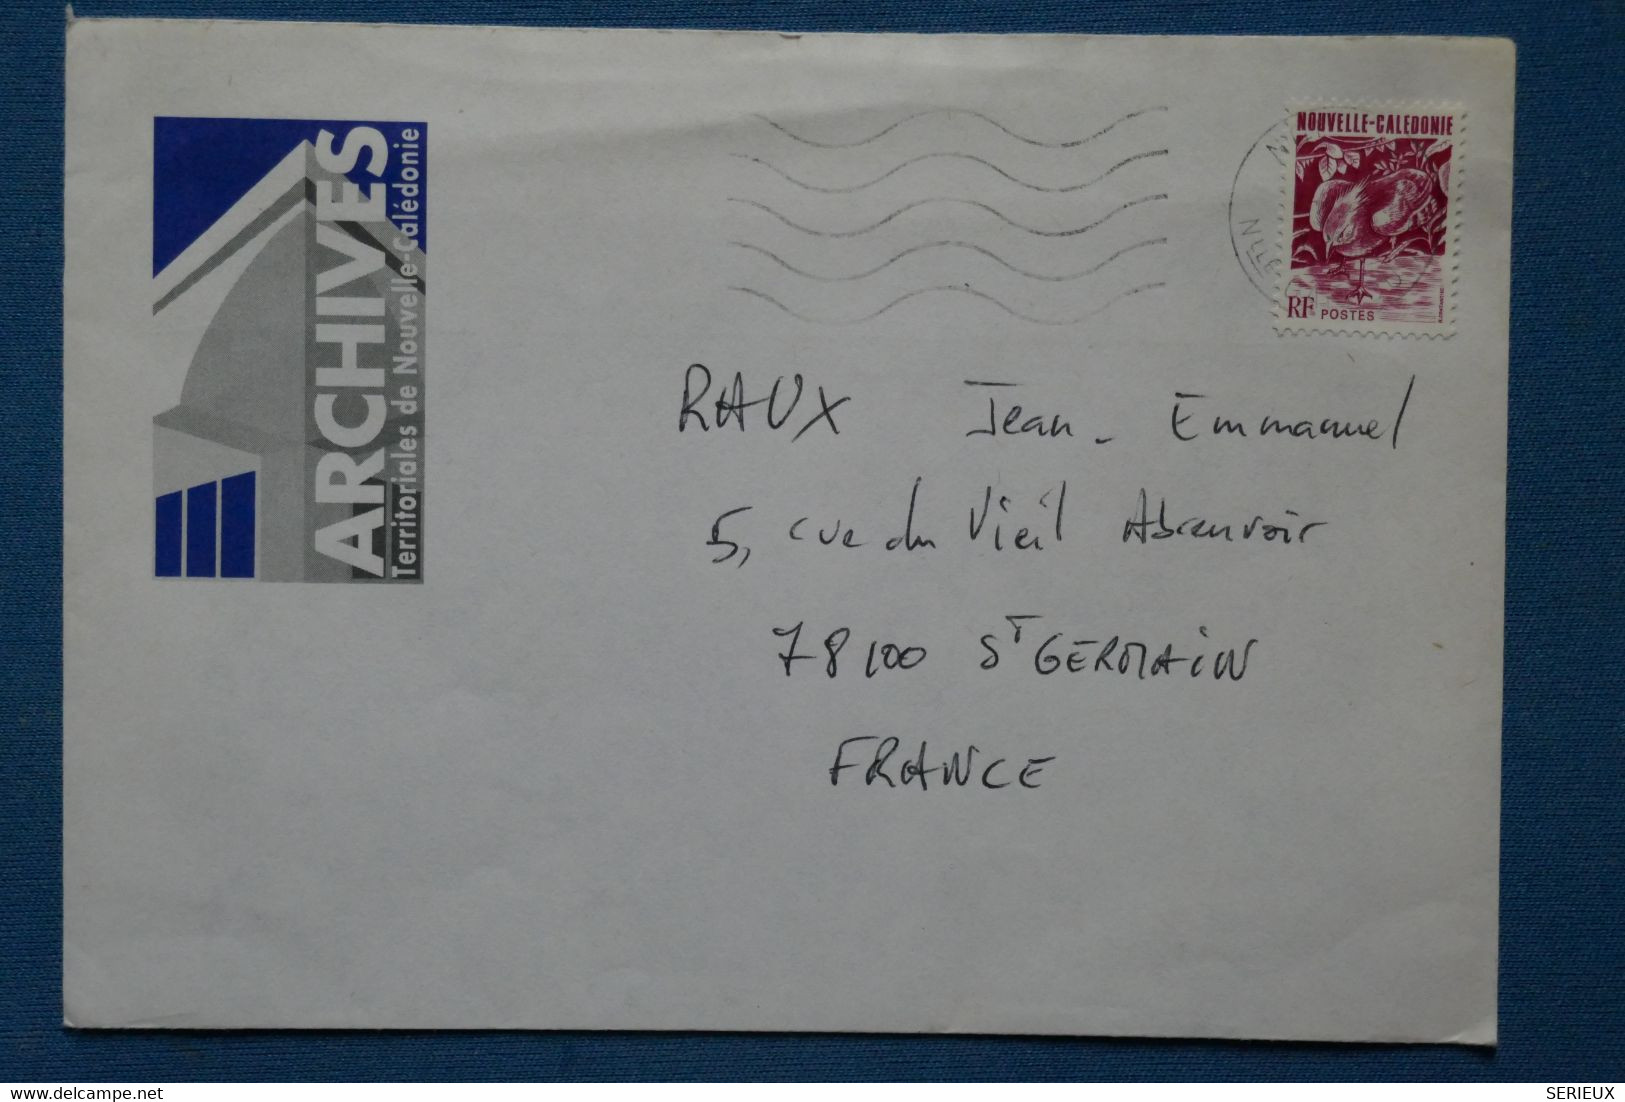 ARCHIVES
Territoriales de Nouvelle-Calédonie
NOUVELLE-CALEDONIE
RF POSTES
NLLE
RAUX Jean-Emmanuel
5, rue du Vieil Abreuvoir
78100 ST GERMAIN
FRANCE
delcampe.net
SERIEUX